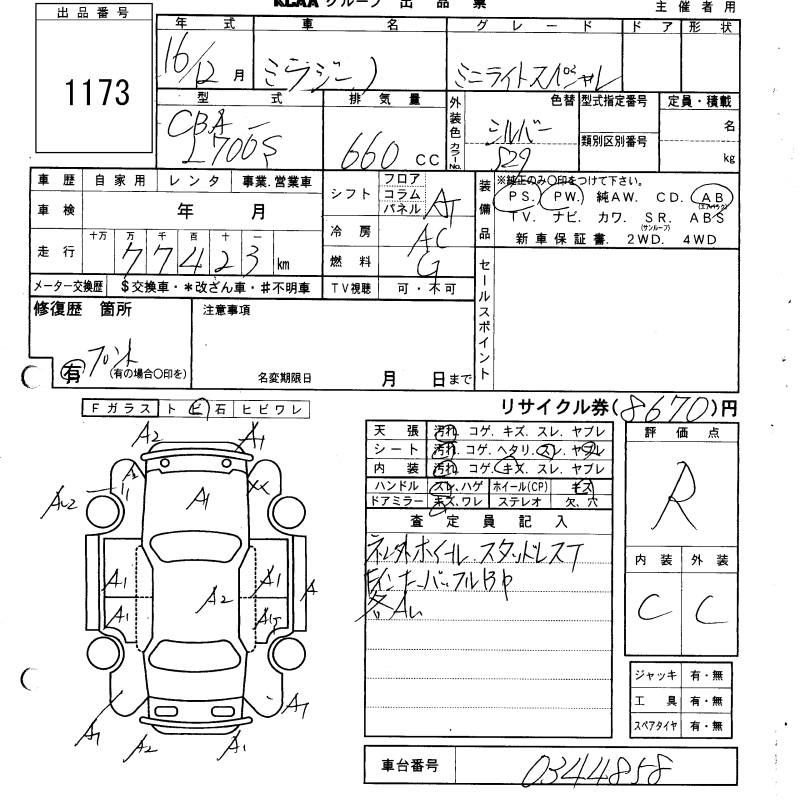 KCAA グループ 出品票
主催者用
出品番号
1173
年式 車名 グレード ドア 形状
16/12月 ミラジーノ ミニライトスペシャル
型式 排気量 外装色 カラーNo. 色替 型式指定番号 定員・積載
CBA-L700S 660cc シルバー S29 類別区別番号 名 kg
車歴 自家用 レンタ 事業.営業車
車検 年 月
走行 十万 万 千 百 十 一
77423km
メーター交換歴 $交換車・*改ざん車・#不明車
シフト フロア コラム パネル AT
冷房 AC
燃料 G
TV視聴 可・不可
装備品 ※純正のみ○印をつけて下さい。
PS. PW. 純AW. CD. AB(エアバッグ)
TV. ナビ. カワ. SR.(サンルーフ) ABS
新車保証書. 2WD. 4WD
セールスポイント
修復歴 箇所
有 フロント
(有の場合○印を)
注意事項
名変期限日 月 日まで
リサイクル券(8670)円
Fガラス トビ石 ヒビワレ
天張 汚れ. コゲ. キズ. スレ. ヤブレ
シート 汚れ. コゲ. ヘタリ. スレ. ヤブレ
内装 汚れ. コゲ. キズ. スレ. ヤブレ
ハンドル スレ.ハゲ ホイール(CP) キズ
ドアミラー キズ.ワレ ステレオ 欠.穴
査定員記入
ホイール.スタッドレスT
評価点
R
内装 外装
C C
ジャッキ 有・無
工具 有・無
スペアタイヤ 有・無
A2 A1
A1 XX
AU2 A1
A1 A1 A
A1 A2
A1 A1
A2 A1
車台番号 0344858